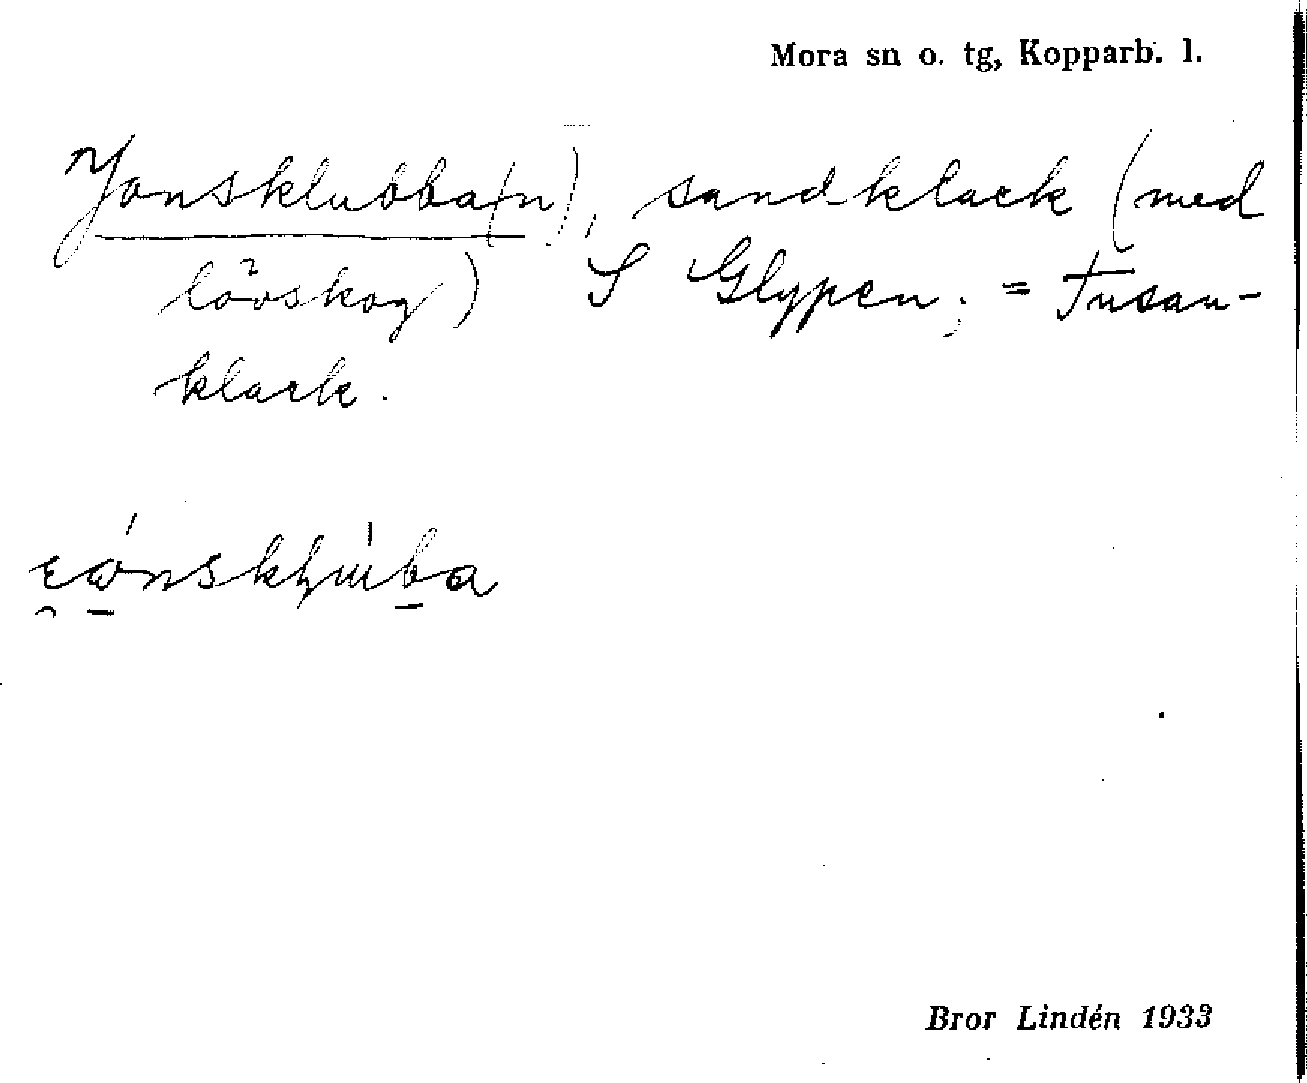 Mora sn o. tg, Kopparb. l.
Jonsklubba(n), sandklack (med
lövskog) S Glypen; = Tusan-
klack.
Bror Lindén 1933